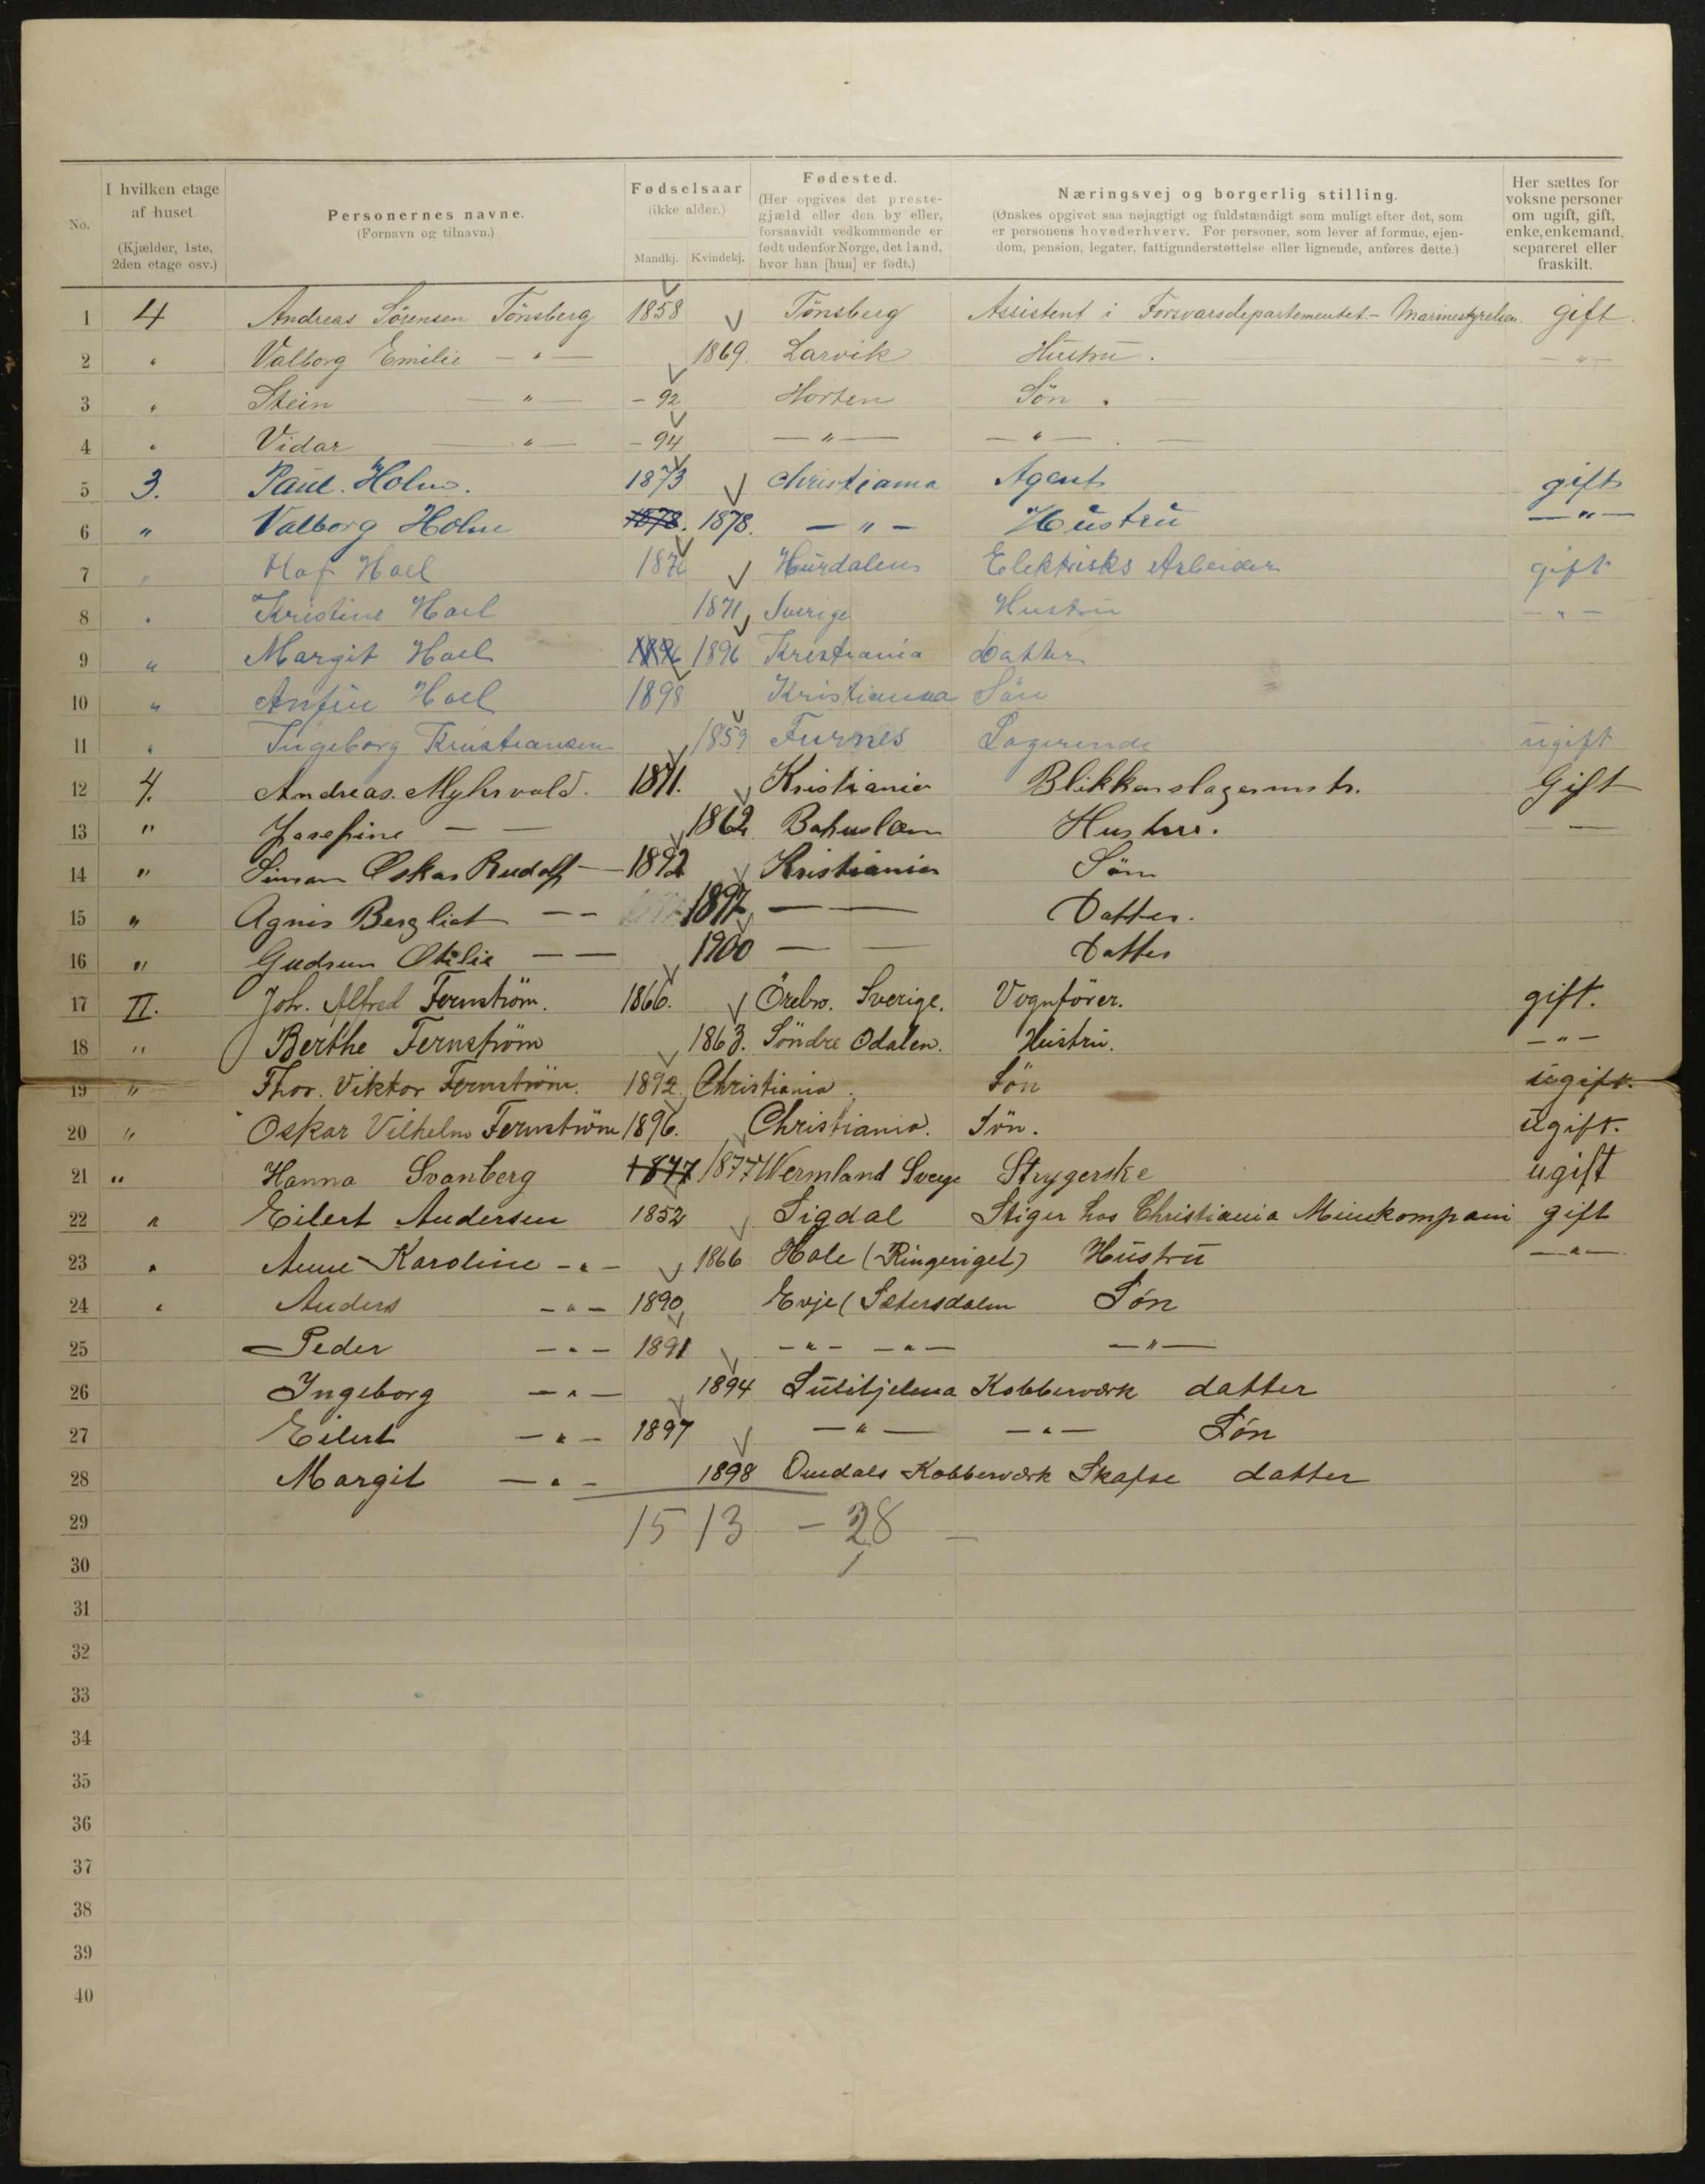 No.
I hvilken etage af huset.
(Kjælder, 1ste, 2den etage osv.)
Personernes navne.
(Fornavn og tilnavn.)
Fødselsaar
(ikke alder.)
Mandkj. Kvindekj.
Fødested.
(Her opgives det prestegjæld eller den by eller, forsaavidt vedkommende er født udenfor Norge, det land, hvor han [hun] er født.)
Næringsvej og borgerlig stilling.
(Ønskes opgivet saa nøjagtigt og fuldstændigt som muligt efter det, som er personens hovederhverv. For personer, som lever af formue, ejendom, pension, legater, fattigunderstøttelse eller lignende, anføres dette.)
Her sættes for voksne personer om ugift, gift, enke, enkemand, separeret eller fraskilt.
1 4 Andreas Sörensen Tönsberg 1858 Tönsberg Assistent i Forsvarsdepartementet - Marinestyrelsen. gift.
2 " Valborg Emilie - " - 1869. Larvik Hustru. - " -
3 " Stein - " - - 92 Horten Sön. -
4 " Vidar - " - - 94 - " - - " - . -
5 3. Paul. Holm. 1873 Christiania Agent gift
6 " Valborg Holm 1878. 1878. - " - Hustru - " -
7 " Olaf Hoel 187 Hurdalen Elektrisks Arbeider gift
8 " Kristine Hoel 1871 Sverige Hustru - " -
9 " Margit Hoel 1896 1896 Kristiania Datter
10 " Anfin Hoel 1898 Kristianna Sön
11 " Ingeborg Kristiansen 1859 Furnes Logerende ugift
12 4. Andreas. Myhrvold. 1871. Kristiania Blikkenslagermstr. Gift
13 " Josefine - - 1862 Bohuslen Hustru. -
14 " Simon Oskar Rudolf - 1892 Kristiania Sön
15 " Agnis Bergliot - - 1897 - - Datter.
16 " Gudrun Otilie - - 1900 - - Datter
17 II. Joh. Alfred Fernström. 1866. Örebro. Sverige. Vognförer. gift.
18 " Berthe Fernström 1863. Söndre Odalen. Hustru. - " -
19 " Thor. Viktor Fernström. 1892. Christiania. Sön ugift.
20 " Oskar Vilhelm Fernström 1896. Christiania. Sön. ugift.
21 " Hanna Svanberg 1877 1877 Wermland Sverge Strygerske ugift
22 " Eilert Andersen 1852 Sigdal Stiger hos Christiania Minekompani gift
23 " Anne Karoline - " - 1866 Hole (Ringeriget) Hustru - " -
24 " Anders - " - 1890 Evje (Sætersdalen Sön
25 Peder - " - 1891 - " - - " - - " -
26 Ingeborg - " - 1894 Sulitjelma Kobberværk datter
27 Eilert - " - 1897 - " - - " - Sön
28 Margit - " - 1898 Omdals Kobberværk Skafse datter
29 15 13 - 28 -
30
31
32
33
34
35
36
37
38
39
40